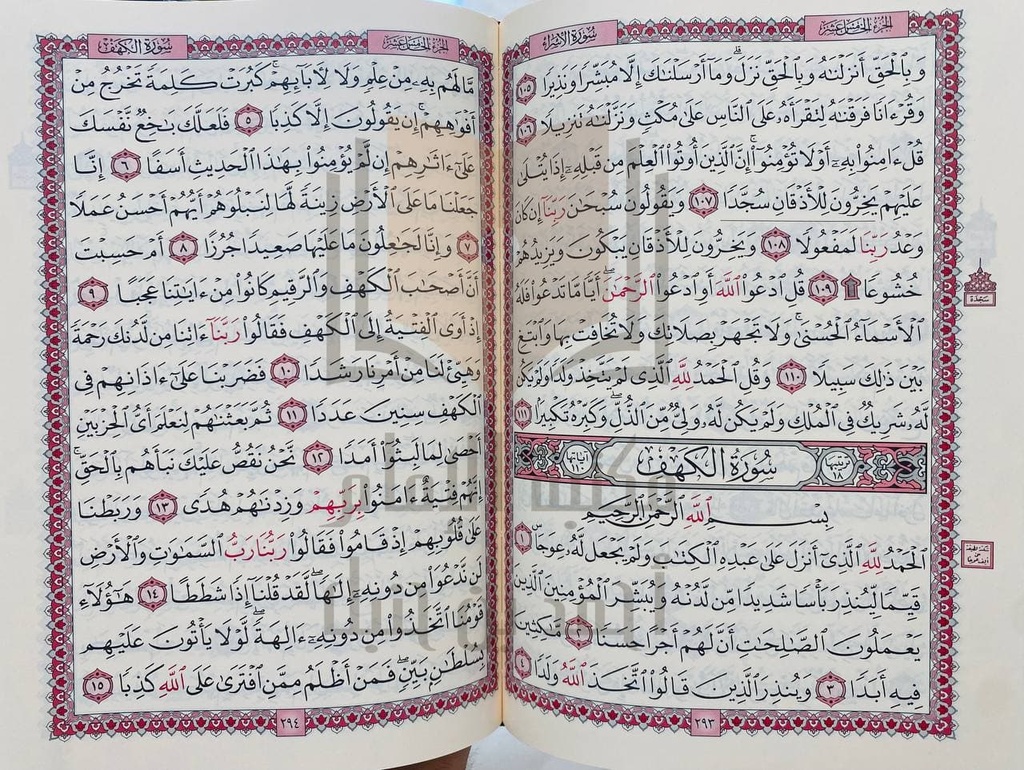 سُورَةُ الإِسْرَاءِ
الجُزْءُ الخَامِسَ عَشَرَ
وَبِٱلْحَقِّ أَنزَلْنَٰهُ وَبِٱلْحَقِّ نَزَلَ وَمَآ أَرْسَلْنَٰكَ إِلَّا مُبَشِّرًا وَنَذِيرًا ١٠٥
وَقُرْءَانًا فَرَقْنَٰهُ لِتَقْرَأَهُۥ عَلَى ٱلنَّاسِ عَلَىٰ مُكْثٍ وَنَزَّلْنَٰهُ تَنزِيلًا ١٠٦
قُلْ ءَامِنُوا۟ بِهِۦٓ أَوْ لَا تُؤْمِنُوٓا۟ ۚ إِنَّ ٱلَّذِينَ أُوتُوا۟ ٱلْعِلْمَ مِن قَبْلِهِۦٓ إِذَا يُتْلَىٰ
عَلَيْهِمْ يَخِرُّونَ لِلْأَذْقَانِ سُجَّدًا ١٠٧ وَيَقُولُونَ سُبْحَٰنَ رَبِّنَآ إِن كَانَ
وَعْدُ رَبِّنَا لَمَفْعُولًا ١٠٨ وَيَخِرُّونَ لِلْأَذْقَانِ يَبْكُونَ وَيَزِيدُهُمْ
خُشُوعًا ۩ ١٠٩ قُلِ ٱدْعُوا۟ ٱللَّهَ أَوِ ٱدْعُوا۟ ٱلرَّحْمَٰنَ ۖ أَيًّا مَّا تَدْعُوا۟ فَلَهُ
ٱلْأَسْمَآءُ ٱلْحُسْنَىٰ ۚ وَلَا تَجْهَرْ بِصَلَاتِكَ وَلَا تُخَافِتْ بِهَا وَٱبْتَغِ
بَيْنَ ذَٰلِكَ سَبِيلًا ١١٠ وَقُلِ ٱلْحَمْدُ لِلَّهِ ٱلَّذِى لَمْ يَتَّخِذْ وَلَدًا وَلَمْ يَكُن
لَّهُۥ شَرِيكٌ فِى ٱلْمُلْكِ وَلَمْ يَكُن لَّهُۥ وَلِىٌّ مِّنَ ٱلذُّلِّ ۖ وَكَبِّرْهُ تَكْبِيرًۢا ١١١
ترتيبها ١٨ سُورَةُ الكَهْفِ آياتها ١١٠
بِسْمِ ٱللَّهِ ٱلرَّحْمَٰنِ ٱلرَّحِيمِ
ٱلْحَمْدُ لِلَّهِ ٱلَّذِىٓ أَنزَلَ عَلَىٰ عَبْدِهِ ٱلْكِتَٰبَ وَلَمْ يَجْعَل لَّهُۥ عِوَجَاۜ ١
قَيِّمًا لِّيُنذِرَ بَأْسًا شَدِيدًا مِّن لَّدُنْهُ وَيُبَشِّرَ ٱلْمُؤْمِنِينَ ٱلَّذِينَ
يَعْمَلُونَ ٱلصَّٰلِحَٰتِ أَنَّ لَهُمْ أَجْرًا حَسَنًا ٢ مَّٰكِثِينَ
فِيهِ أَبَدًا ٣ وَيُنذِرَ ٱلَّذِينَ قَالُوا۟ ٱتَّخَذَ ٱللَّهُ وَلَدًا ٤
٢٩٣
سَجْدَة
الجُزْءُ الخَامِسَ عَشَرَ
سُورَةُ الكَهْفِ
مَّا لَهُم بِهِۦ مِنْ عِلْمٍ وَلَا لِءَابَآئِهِمْ ۚ كَبُرَتْ كَلِمَةً تَخْرُجُ مِنْ
أَفْوَٰهِهِمْ ۚ إِن يَقُولُونَ إِلَّا كَذِبًا ٥ فَلَعَلَّكَ بَٰخِعٌ نَّفْسَكَ
عَلَىٰٓ ءَاثَٰرِهِمْ إِن لَّمْ يُؤْمِنُوا۟ بِهَٰذَا ٱلْحَدِيثِ أَسَفًا ٦ إِنَّا
جَعَلْنَا مَا عَلَى ٱلْأَرْضِ زِينَةً لَّهَا لِنَبْلُوَهُمْ أَيُّهُمْ أَحْسَنُ عَمَلًا
٧ وَإِنَّا لَجَٰعِلُونَ مَا عَلَيْهَا صَعِيدًا جُرُزًا ٨ أَمْ حَسِبْتَ
أَنَّ أَصْحَٰبَ ٱلْكَهْفِ وَٱلرَّقِيمِ كَانُوا۟ مِنْ ءَايَٰتِنَا عَجَبًا ٩
إِذْ أَوَى ٱلْفِتْيَةُ إِلَى ٱلْكَهْفِ فَقَالُوا۟ رَبَّنَآ ءَاتِنَا مِن لَّدُنكَ رَحْمَةً
وَهَيِّئْ لَنَا مِنْ أَمْرِنَا رَشَدًا ١٠ فَضَرَبْنَا عَلَىٰٓ ءَاذَانِهِمْ فِى
ٱلْكَهْفِ سِنِينَ عَدَدًا ١١ ثُمَّ بَعَثْنَٰهُمْ لِنَعْلَمَ أَىُّ ٱلْحِزْبَيْنِ
أَحْصَىٰ لِمَا لَبِثُوٓا۟ أَمَدًا ١٢ نَّحْنُ نَقُصُّ عَلَيْكَ نَبَأَهُم بِٱلْحَقِّ ۚ
إِنَّهُمْ فِتْيَةٌ ءَامَنُوا۟ بِرَبِّهِمْ وَزِدْنَٰهُمْ هُدًى ١٣ وَرَبَطْنَا
عَلَىٰ قُلُوبِهِمْ إِذْ قَامُوا۟ فَقَالُوا۟ رَبُّنَا رَبُّ ٱلسَّمَٰوَٰتِ وَٱلْأَرْضِ
لَن نَّدْعُوَا۟ مِن دُونِهِۦٓ إِلَٰهًا ۖ لَّقَدْ قُلْنَآ إِذًا شَطَطًا ١٤ هَٰٓؤُلَآءِ
قَوْمُنَا ٱتَّخَذُوا۟ مِن دُونِهِۦٓ ءَالِهَةً ۖ لَّوْلَا يَأْتُونَ عَلَيْهِم
بِسُلْطَٰنٍۭ بَيِّنٍ ۖ فَمَنْ أَظْلَمُ مِمَّنِ ٱفْتَرَىٰ عَلَى ٱللَّهِ كَذِبًا ١٥
٢٩٤